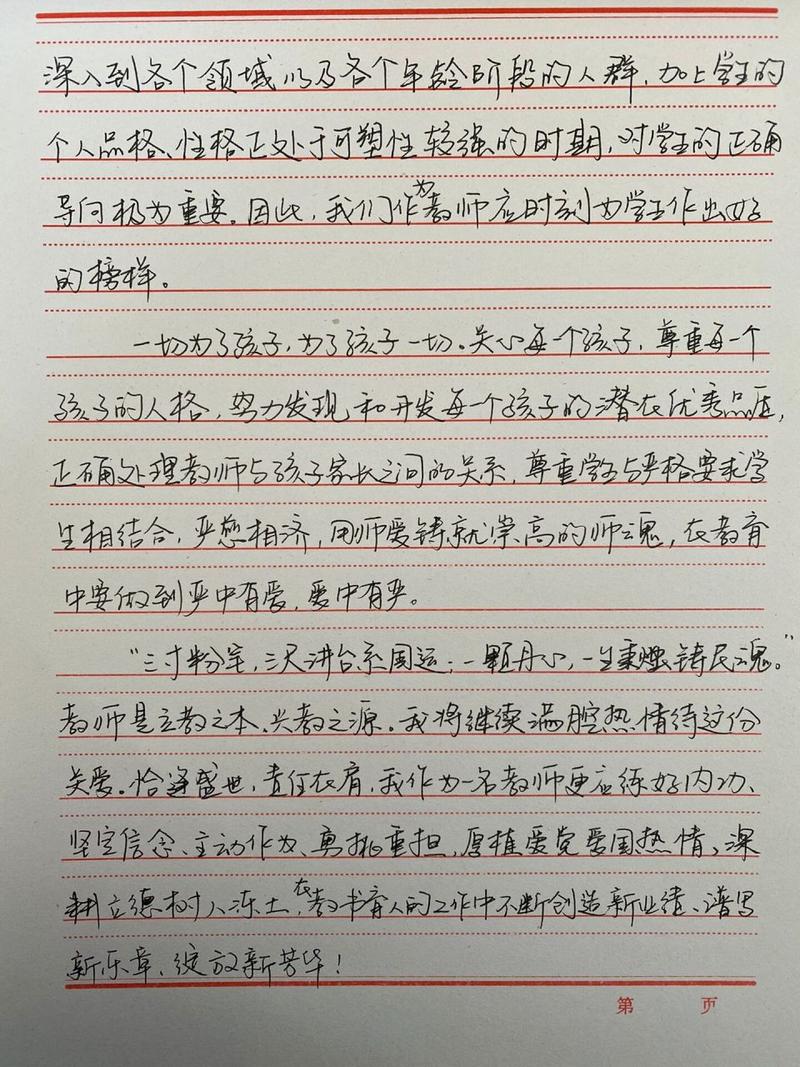 深入到各个领域以及各个年龄阶段的人群，加上学生的
个人品格、性格正处于可塑性较强的时期，对学生的正确
导向极为重要。因此，我们作为教师应时刻为学生作出好
的榜样。
一切为了孩子，为了孩子一切。关心每一个孩子，尊重每一个
孩子的人格，努力发现和开发每一个孩子的潜在优秀品质，
正确处理教师与孩子家长之间的关系，尊重学生与严格要求学
生相结合，严慈相济，用师爱铸就崇高的师魂，在教育
中要做到严中有爱，爱中有严。
“三寸粉笔，三尺讲台系国运；一颗丹心，一生秉烛铸民魂。”
教师是立教之本、兴教之源。我将继续满腔热情待这份
关爱。恰逢盛世，责任在肩，我作为一名教师更应练好内功、
坚定信念、主动作为、勇挑重担，厚植爱党爱国热情，深
耕立德树人冻土，在教书育人的工作中不断创造新业绩、谱写
新乐章、绽放新芳华！
第 页